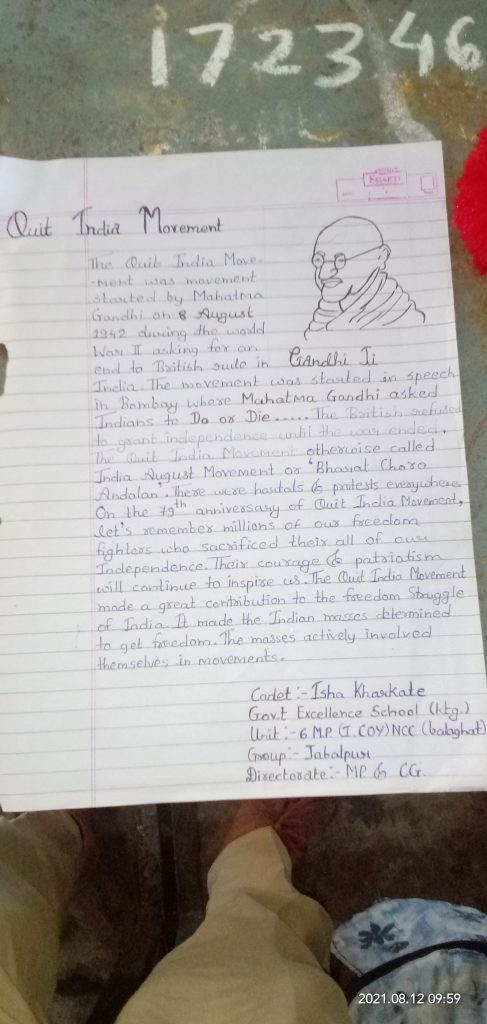 172346
Quit India Movement
The Quit India Move-
-ment was movement
started by Mahatma
Gandhi on 8 August
1942 during the world
War II asking for an
end to British rule in
Gandhi Ji
India. The movement was started in speech
in Bombay where Mahatma Gandhi asked
Indians to Do or Die..... The British refused
to grant independence until the war ended.
The Quit India Movement otherwise called
India August Movement or 'Bharat Choro
Andolan'. There were hartals & protests everywhere.
On the 79th anniversary of Quit India Movement,
let's remember millions of our freedom
fighters who sacrificed their all of our
Independence. Their courage & patriotism
will continue to inspire us. The Quit India Movement
made a great contribution to the freedom Struggle
of India. It made the Indian masses determined
to get freedom. The masses actively involved
themselves in movements.
Cadet :- Isha Kharkate
Govt Excellence School (ktg.)
Unit :- 6 M.P (I. COY) NCC (balaghat)
Group :- Jabalpur
Directorate :- MP & CG.
2021.08.12 09:59